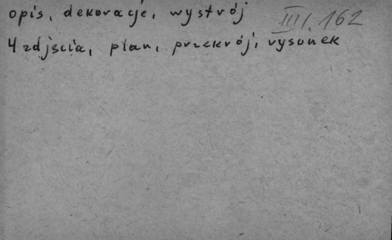 opis, dekoracje, wystrój
III, 162
4 zdjęcia, plan, przekrój, rysunek